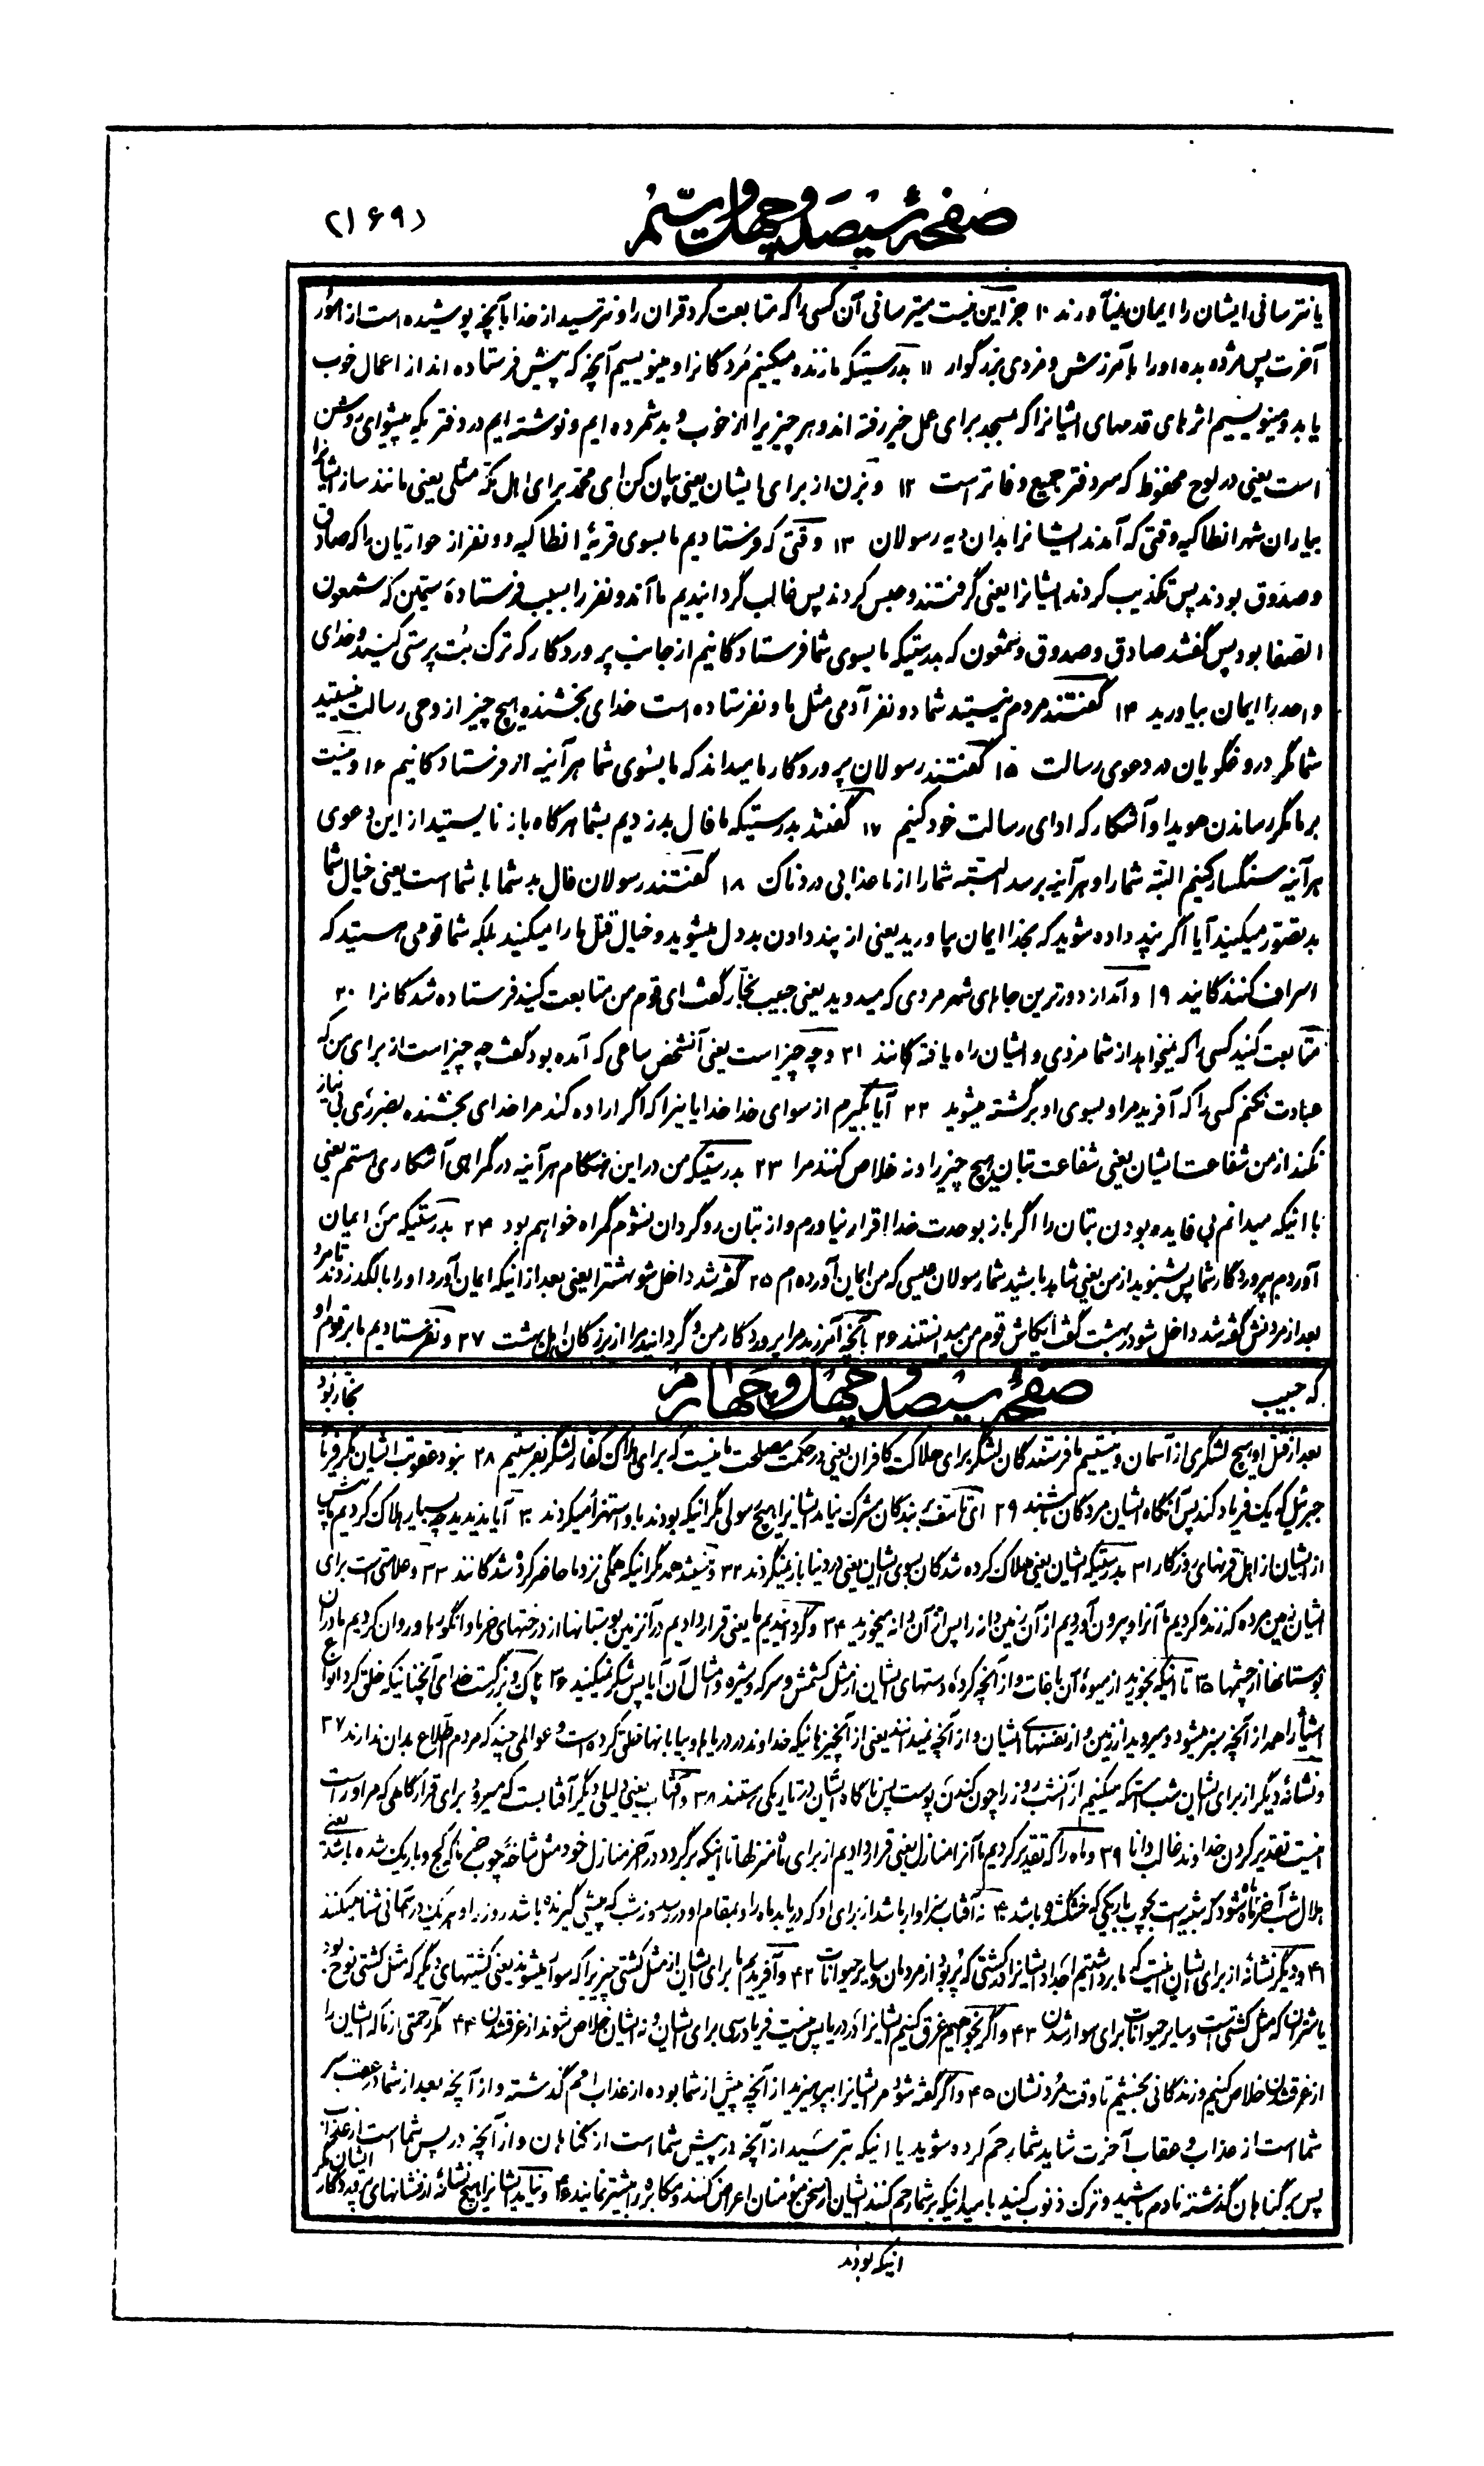 صفحهٔ سیصد و چهل و سیّم
(۱۶۹)
یا نترسانی ایشان را ایمان نمیآورند ۱۰ جز این نیست میترسانی آن کسی را که متابعت کرد قران را و ترسید از خدا بآنچه پوشیده است از امور
آخرت پس مژده بده او را بآمرزش و مزدی بزرگوار ۱۱ بدرستیکه ما زنده میکنیم مردگانرا و مینویسیم آنچه که پیش فرستاده اند از اعمال خوب
یا بد و مینویسیم اثرهای قدمهای ایشانرا که بمسجد برای عمل خیر رفته اند و هر چیزیرا از خوب و بد شمرده ایم و نوشته ایم در دفتریکه پیشوای روشن
است یعنی در لوح محفوظ که سر دفتر جمیع دفاتر است ۱۲ و بزن از برای ایشان یعنی بیان کن ای محمد برای اهل مکه مثلی یعنی مانند ساز ایشانرا
بیاران شهر انطاکیه وقتی که آمدند ایشانرا بدان دیه رسولان ۱۳ وقتی که فرستادیم ما بسوی قریهٔ انطاکیه دو نفر از حواریان را که صادق
و صدوق بودند پس تکذیب کردند ایشانرا یعنی گرفتند و حبس کردند پس غالب گردانیدیم ما آندو نفر را بسبب فرستادهٔ سیمین که شمعون
الصفا بود پس گفتند صادق و صدوق و شمعون که بدرستیکه ما بسوی شما فرستادگانیم از جانب پروردگار که ترک بت پرستی کنید و خدای
واحد را ایمان بیاورید ۱۴ گفتند مردم نیستید شما دو نفر آدمی مثل ما و نفرستاده است خدای بخشنده هیچ چیز از وحی رسالت نیستید
شما مگر دروغگویان در دعوی رسالت ۱۵ گفتند رسولان پروردگار ما میداند که ما بسوی شما هر آینه از فرستادگانیم ۱۶ و نیست
بر ما مگر رساندن هویدا و آشکار که ادای رسالت خود کنیم ۱۷ گفتند بدرستیکه ما فال بد زدیم بشما هرگاه باز نایستید از این دعوی
هر آینه سنگسار کنیم البته شما را و هر آینه برسد البته شما را از ما عذابی دردناک ۱۸ گفتند رسولان فال بد شما با شما است یعنی خیال شما
بد تصور میکنید آیا اگر پند داده شوید که بخدا ایمان بیاورید یعنی از پند دادن بد دل میشوید و خیال قتل ما را میکنید بلکه شما قومی هستید که
اسراف کنندگانید ۱۹ و آمد از دورترین جاهای شهر مردی که میدوید یعنی حبیب نجّار گفت ای قوم من متابعت کنید فرستاده شدگانرا ۲۰
متابعت کنید کسی را که نمیخواهد از شما مزدی و ایشان راه یافته گانند ۲۱ و چه چیز است یعنی آنشخص ساعی که آمده بود گفت چه چیز است از برای من که
عبادت نکنم کسی را که آفرید مرا و بسوی او برگشته میشوید ۲۲ آیا بگیرم از سوای خدا خدایانیرا که اگر اراده کند مرا خدای بخشنده بضرری بی نیاز
نکند از من شفاعت ایشان یعنی شفاعت بتان هیچ چیز را و نه خلاص کنند مرا ۲۳ بدرستیکه من در این هنگام هر آینه در گمراهی آشکاری هستم یعنی
با اینکه میدانم بی فایده بودن بتان را اگر باز بوحدت خدا اقرار نیاورم و از بتان روگردان نشوم گمراه خواهم بود ۲۴ بدرستیکه من ایمان
آوردم بپروردگار شما پس بشنوید از من یعنی شاهد باشید شما رسولان عیسی که من ایمان آورده ام ۲۵ گفته شد داخل شو بهشترا یعنی بعد از اینکه ایمان آورد او را بالگد زدند تا مرد
بعد از مردنش گفته شد داخل شو در بهشت گفت ایکاش قوم من میدانستند ۲۶ بآنچه آمرزید مرا پروردگار من و گردانید مرا از بزرگان اهل بهشت ۲۷ و نفرستادیم ما بر قوم او
که حبیب
صفحهٔ سیصد و چهل و چهارم
نجار بود
بعد از قتل او هیچ لشگری از آسمان و نیستیم ما فرستندگان لشگر برای هلاکت کافران یعنی در حکمت مصلحت ما نیست که برای هلاک کفار لشگر بفرستیم ۲۸ نبود عقوبت ایشان مگر فریاد
جبرئیل که یک فریاد کند پس آنگاه ایشان مردگان باشند ۲۹ ای تاسّف بر بندگان مشرک نیاید ایشانرا هیچ رسولی مگر اینکه بودند باو استهزا میکردند ۳۰ آیا ندیدید چه بسیار هلاک کردیم ما پیش
از ایشان از اهل قرنهای روزگار ۳۱ بدرستیکه ایشان یعنی هلاک کرده شدگان بسوی ایشان یعنی در دنیا باز نمیگردند ۳۲ و نیستند همه مگر اینکه همگی نزد ما حاضر کرده شدگانند ۳۳ و علامتی است برای
ایشان زمین مرده که زنده کردیم ما آنرا و بیرون آوردیم از آن زمین دانه را پس از آن دانه میخورید ۳۴ و گردانیدیم ما یعنی قرار دادیم در آن زمین بوستانها از درختهای خرما و انگورها و روان کردیم ما در آن
بوستانها از چشمها ۳۵ تا اینکه بخورید از میوهٔ آن باغات و از آنچه کرده دستهای ایشان از مثل کشمش و سرکه و شیره و امثال آن آیا پس شکر نمیکنید ۳۶ پاک و بزرگست خدای آنچنانیکه خلق کرد انواع
اشیا را همه از آنچه سبز میشود و میروید از زمین و از نفسهای ایشان و از آنچه نمیدانند یعنی از آنچیزهائیکه خداوند در دریاها و بیابانها خلق کرده است و عوالمی چند که مردم اطلاع بدان ندارند ۳۷
و نشانهٔ دیگر از برای ایشان شب استکه میکنیم از آنشب روز را چون کندن پوست پس ناگاه ایشان در تاریکی هستند ۳۸ و آفتاب یعنی دلیلی دیگر آفتابست که میرود برای قرارگاهی که مر او راست
اینست تقدیر کردن خداوند غالب دانا ۳۹ و ماه را که تقدیر کردیم ما آنرا منازل یعنی قرار دادیم از برای ماه منزلها تا اینکه برگردد در آخر منازل خود مثل شاخهٔ چوب خرما که کج و باریک شده باشد یعنی
هلال شب آخر ماه شود که شبیه است بچوب باریکی که خشک شده باشد ۴۰ نه آفتاب سزاوار باشد از برای او که دریابد ماه را و بمقام او در رسد و نه شب که پیشی گیرنده باشد روز را و هر یک در آسمانی شنا میکنند
۴۱ و دیگر نشانهٔ از برای ایشان اینست که ما برداشتیم اجداد ایشانرا در کشتی که پُر بود از مردمان و سایر حیوانات ۴۲ و آفریدیم ما برای ایشان از مثل کشتی چیزیرا که سوار میشوند یعنی کشتیهای دیگر که مثل کشتی نوح بود
یا شتران که مثل کشتی است و سایر حیوانات برای سوار شدن ۴۳ و اگر بخواهیم غرق کنیم ایشانرا در دریا پس نیست فریادرسی برای ایشان و نه ایشان خلاص شوند از غرقشدن ۴۴ مگر رحمتی از ما که ایشان را
از غرقشدن خلاص کنیم و زندگانی بخشیم تا وقت مردنشان ۴۵ و اگر گفته شود مر ایشانرا بپرهیزید از آنچه پیش از شما بوده از عذاب امم گذشته و از آنچه بعد از شما در عقب سر
شما است از عذاب و عقاب آخرت شاید شما رحم کرده شوید یا اینکه بترسید از آنچه در پیش شما است از گناهان و از آنچه در پس شما است از عذاب
پس بر گناهان گذشته نادم باشید و ترک ذنوب کنید بامید اینکه بر شما رحم کنند ایشان از سخن مؤمنان اعراض کنند و مکابره را بیشتر نمایند ۴۶ و نیاید ایشانرا هیچ نشانهٔ از نشانهای پروردگار ایشان مگر
اینکه بودند